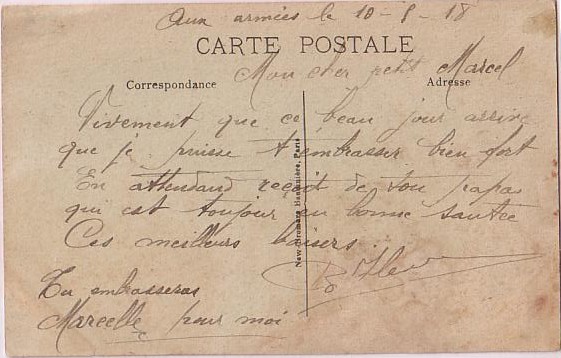 Aux armées le 10-8-18
CARTE POSTALE
Mon cher petit Marcel
Correspondance Adresse
Vivement que ce beau jour arrive
que je puisse t'embrasser bien fort
En attendand reçoit de ton papas
qui est toujour en bonne santée
Ces meilleurs baisers
Tu embrasseras
Marcelle pour moi
Paris